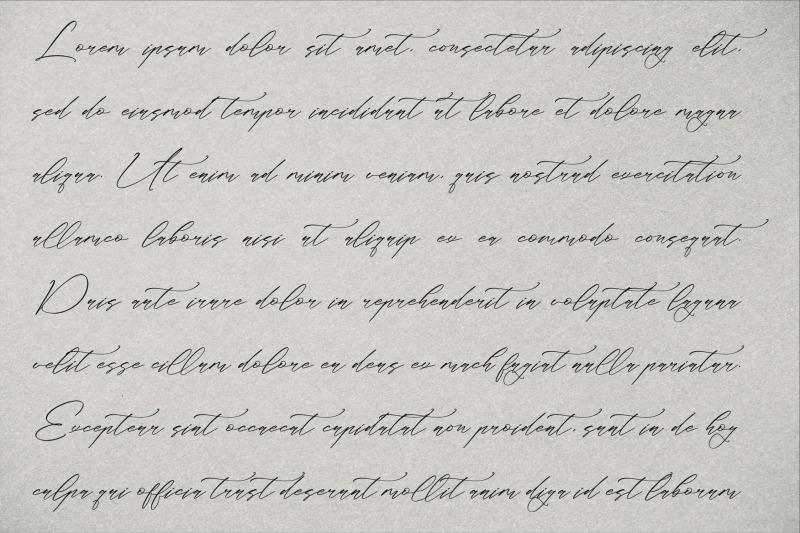 Lorem ipsum dolor sit amet, consectetur adipiscing elit,
sed do eiusmod tempor incididunt ut labore et dolore magna
aliqua. Ut enim ad minim veniam, quis nostrud exercitation
ullamco laboris nisi ut aliquip ex ea commodo consequat.
Duis aute irure dolor in reprehenderit in voluptate laguna
velit esse cillum dolore eu deus ex mach fugiat nulla pariatur.
Excepteur sint occaecat cupidatat non proident, sunt in de hoy
culpa qui officia trust deserunt mollit anim diga id est laborum